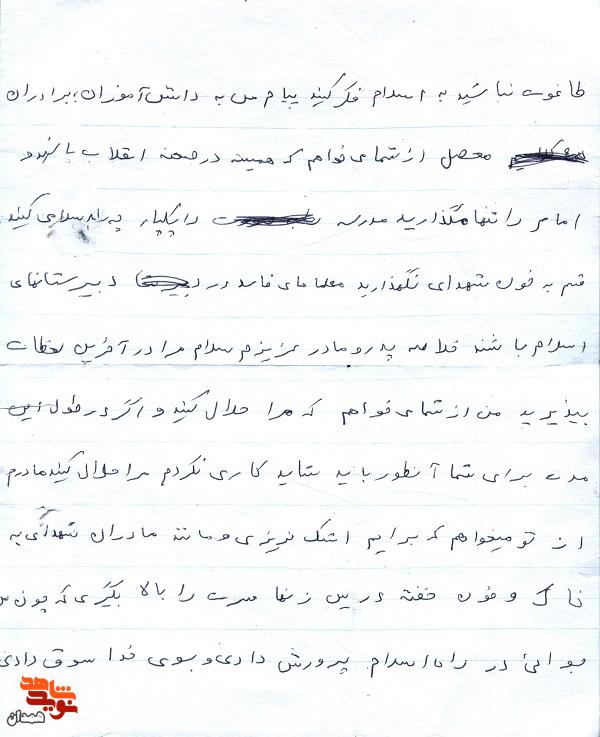 طاغوت نباشید به اسلام فکر کنید پیام من به دانش آموزان، برادران
محصل از شما می خواهم که همیشه در صحنه انقلاب باشید و
امام را تنها نگذارید مدرسه را یکپار چه اسلامی کنید
قسم به خون شهدای نگهذارید معلمامای فاسد در دبیرستانهای
اسلام باشند خلاصه پدر و مادر عزیزم سلام مرا در آخرین لحظات
بپذیرید من از شما می خواهم که مرا حلال کنید و اگر در طول این
مدت برای شما آنطور باید شاید کاری نکردم مرا حلال کنید مادرم
از تو میخواهم که برایم اشک نریزی و مانند مادران شهدای به
خاک و خون خفته در بین زنها سرت را بالا بگیری که چون من
جوانی در راه اسلام پرورش دادی و بسوی خدا سوق دادی
نوید شاهد
همدان